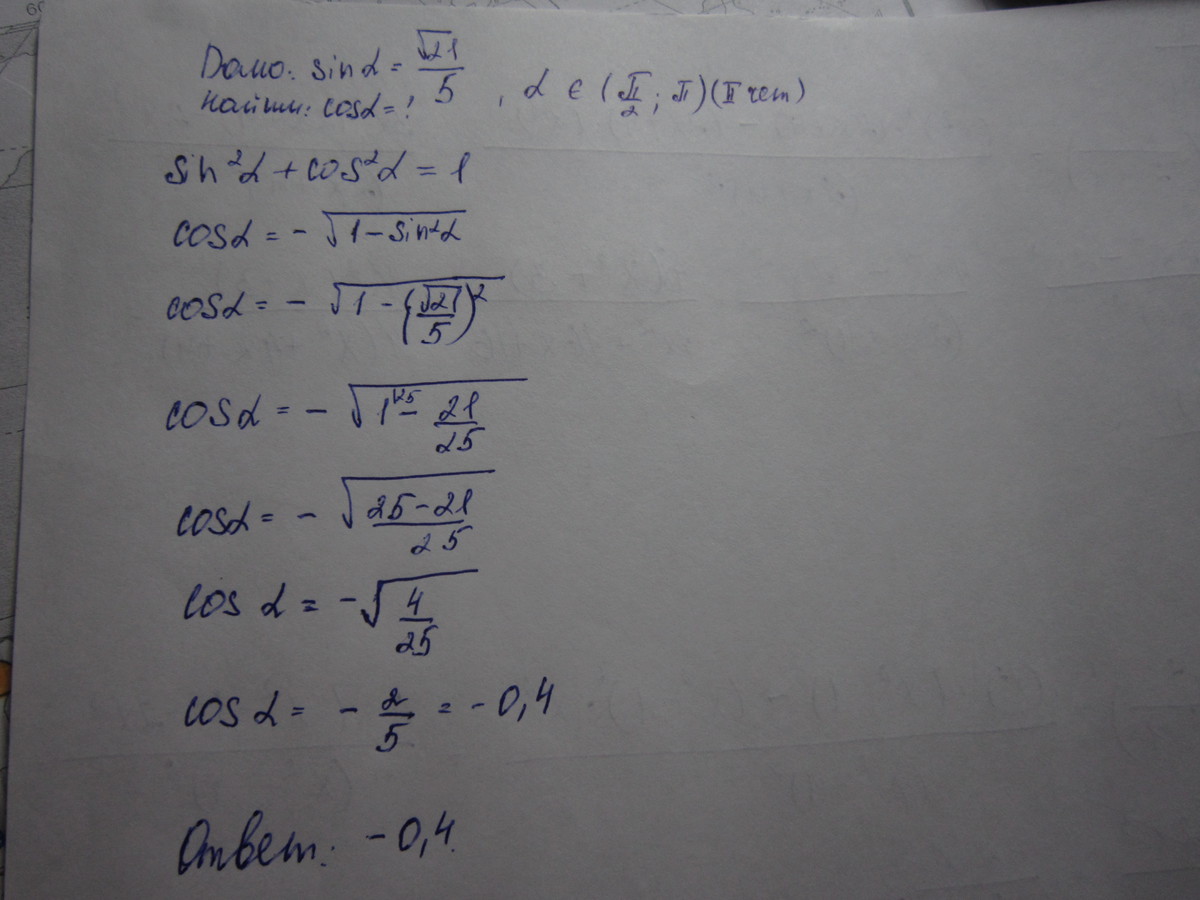 Дано: sin α = √21/5, α ∈ (π/2; π) (II чет)
Найти: cos α = ?
sin²α + cos²α = 1
cos α = - √(1 - sin²α)
cos α = - √(1 - (√21/5)²)
cos α = - √(1^(\25) - 21/25)
cos α = - √((25 - 21)/25)
cos α = - √(4/25)
cos α = - 2/5 = - 0,4
Ответ: - 0,4.